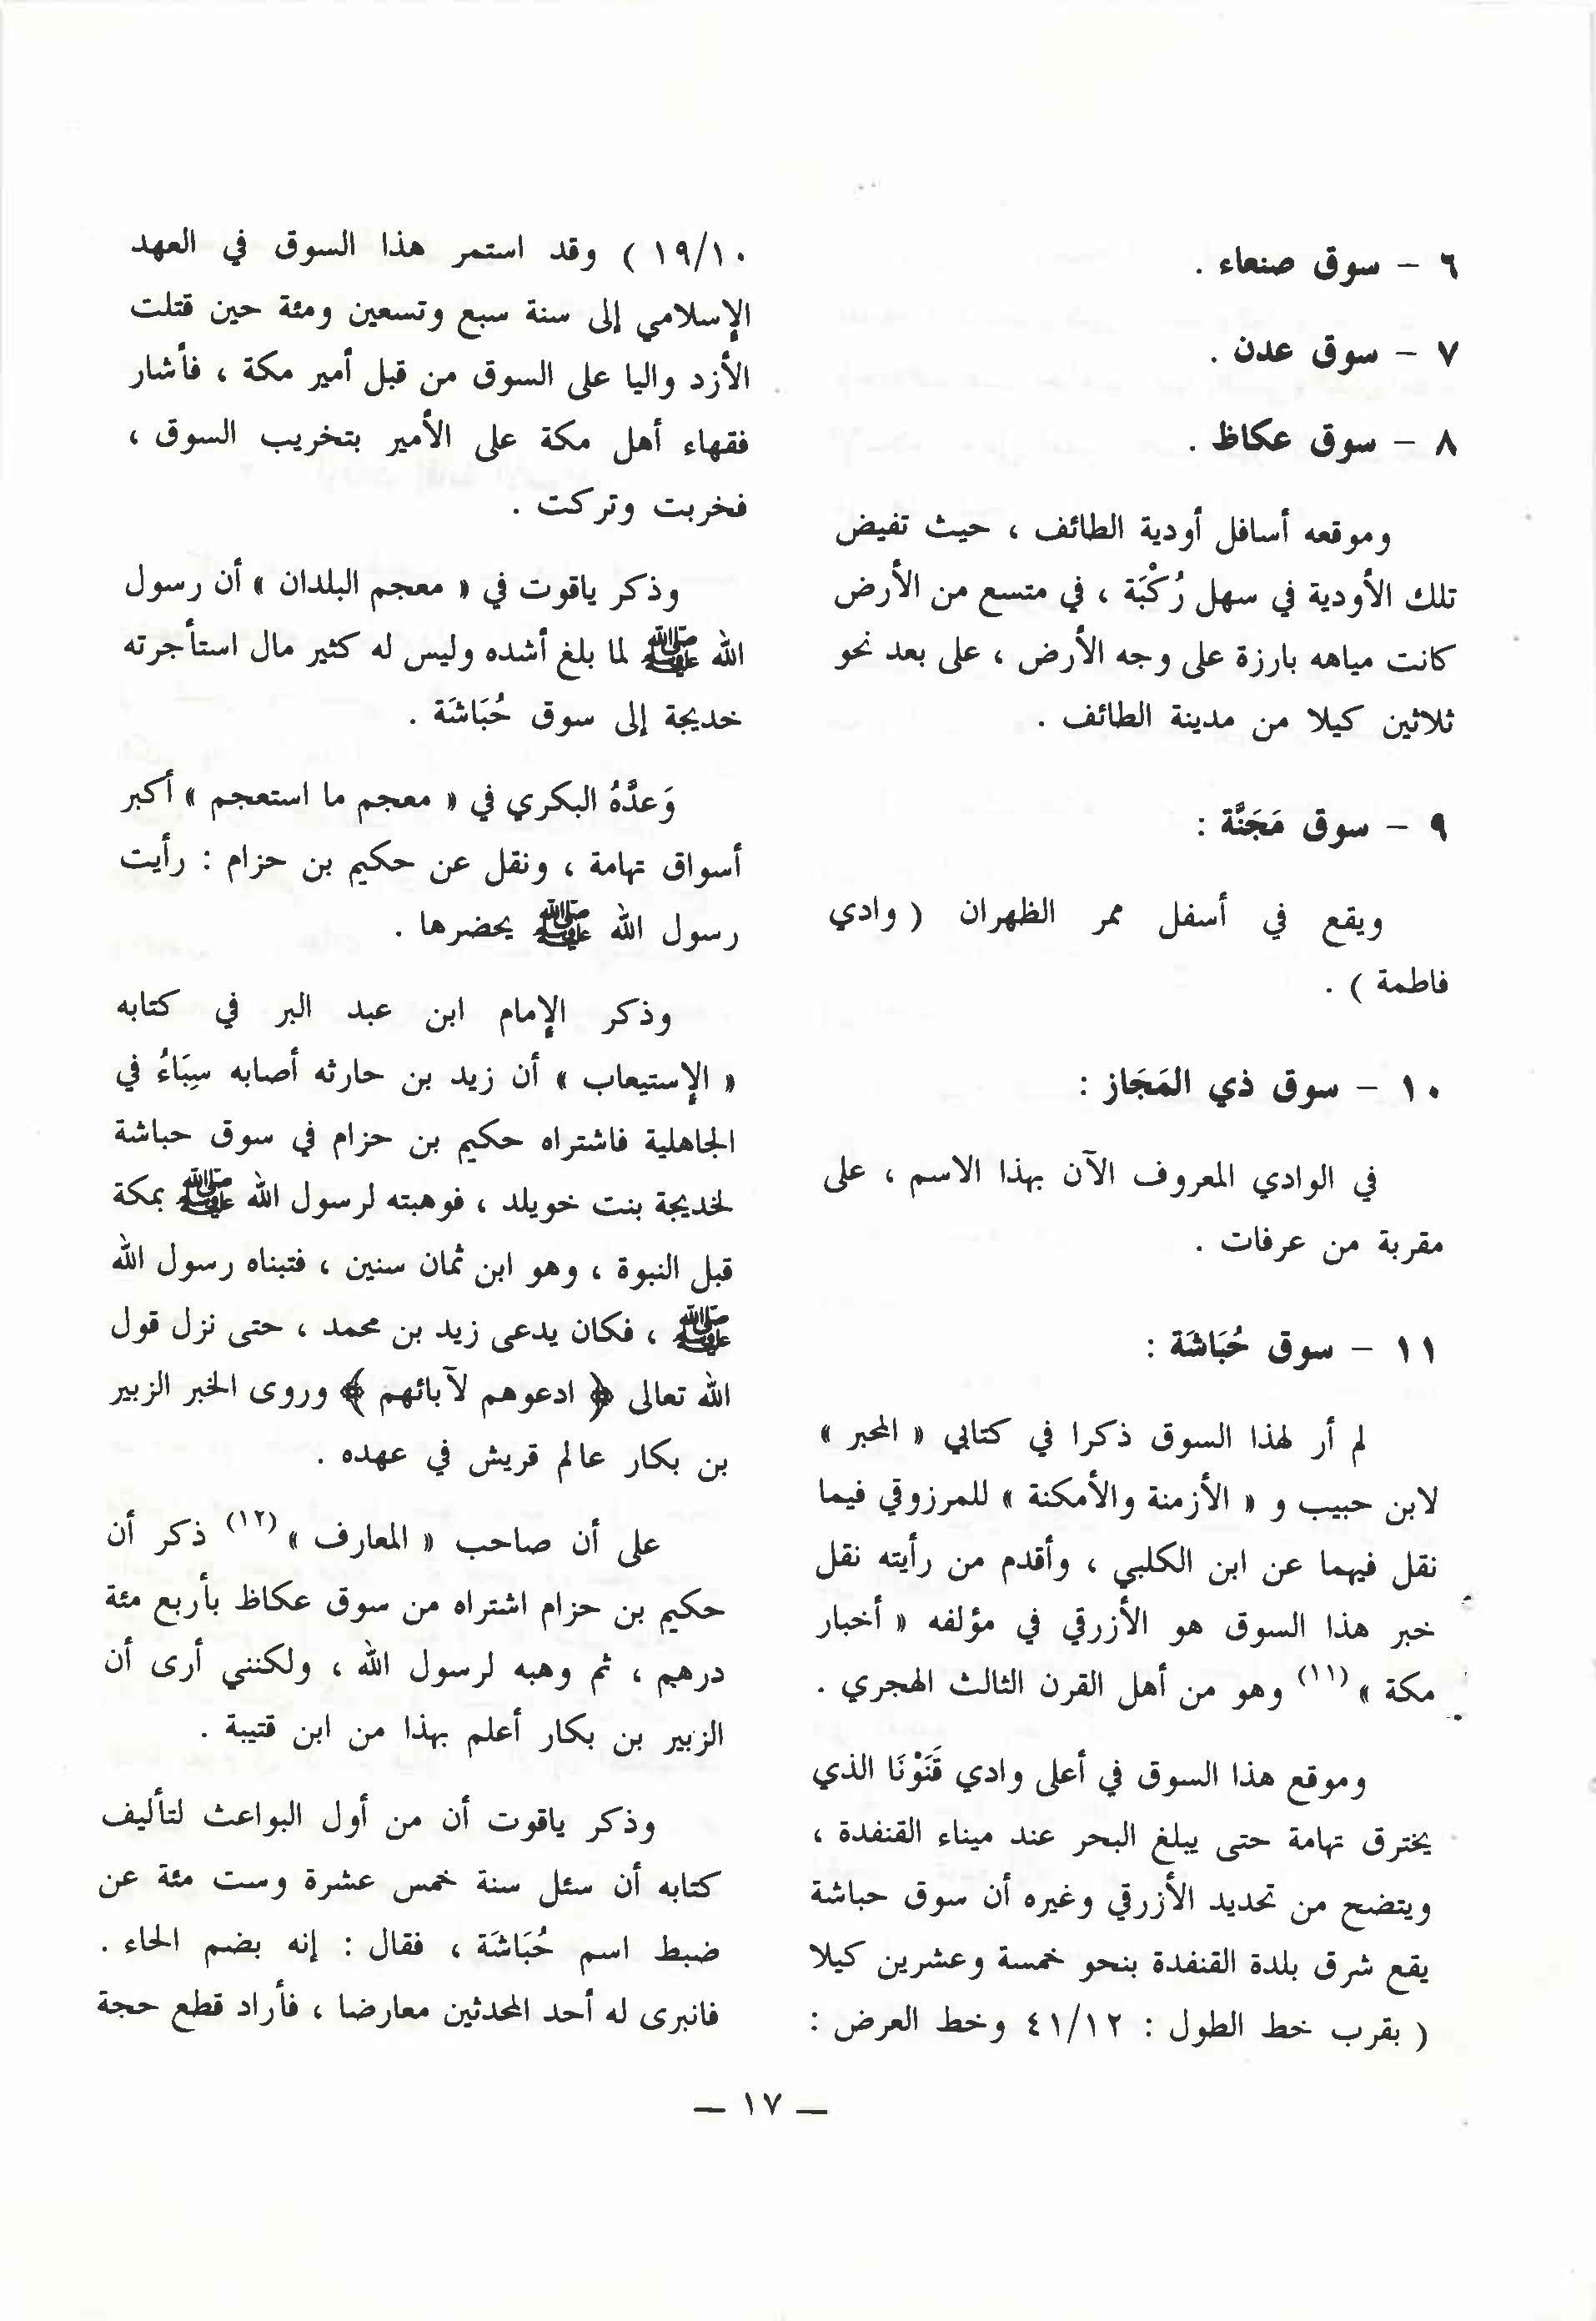 ٦ – سوق صنعاء .
٧ – سوق عدن .
٨ – سوق عكاظ .
وموقعه أسافل أودية الطائف ، حيث تفيض
تلك الأودية في سهل رُكْبَة ، في متسع من الأرض
كانت مياهه بارزة على وجه الأرض ، على بعد نحو
ثلاثين كيلا من مدينة الطائف .
٩ – سوق مَجَنَّة :
ويقع في أسفل ممر الظهران ( وادي
فاطمة ) .
١٠ – سوق ذي المَجَاز :
في الوادي المعروف الآن بهذا الاسم ، على
مقربة من عرفات .
١١ – سوق حُبَاشَة :
لم أر لهذا السوق ذكرا في كتابي « المحبر »
لابن حبيب و « الأزمنة والأمكنة » للمرزوقي فيما
نقل فيهما عن ابن الكلبي ، وأقدم من رأيته نقل
خبر هذا السوق هو الأزرقي في مؤلفه « أخبار
مكة » (١١) وهو من أهل القرن الثالث الهجري .
وموقع هذا السوق في أعلى وادي قَنَوْنَا الذي
يخترق تهامة حتى يبلغ البحر عند ميناء القنفدة ،
ويتضح من تحديد الأزرقي وغيره أن سوق حباشة
يقع شرق بلدة القنفدة بنحو خمسة وعشرين كيلا
( بقرب خط الطول : ٤١/١٢ وخط العرض :
١٩/١٠ ) وقد استمر هذا السوق في العهد
الإسلامي إلى سنة سبع وتسعين ومئة حين قتلت
الأزد واليا على السوق من قبل أمير مكة ، فأشار
فقهاء أهل مكة على الأمير بتخريب السوق ،
فخربت وتركت .
وذكر ياقوت في « معجم البلدان » أن رسول
الله ﷺ لما بلغ أشده وليس له كثير مال استأجرته
خديجة إلى سوق حُبَاشَة .
وَعدَّهُ البكري في « معجم ما استعجم » أكبر
أسواق تهامة ، ونقل عن حكيم بن حزام : رأيت
رسول الله ﷺ يحضرها .
وذكر الإمام ابن عبد البر في كتابه
« الإستيعاب » أن زيد بن حارثه أصابه سِبَاءُ في
الجاهلية فاشتراه حكيم بن حزام في سوق حباشة
لخديجة بنت خويلد ، فوهبته لرسول الله ﷺ بمكة
قبل النبوة ، وهو ابن ثمان سنين ، فتبناه رسول الله
ﷺ ، فكان يدعى زيد بن محمد ، حتى نزل قول
الله تعالى ﴿ ادعوهم لآبائهم ﴾ وروى الخبر الزبير
بن بكار عالم قريش في عهده .
على أن صاحب « المعارف » (١٢) ذكر أن
حكيم بن حزام اشتراه من سوق عكاظ بأربع مئة
درهم ، ثم وهبه لرسول الله ، ولكنني أرى أن
الزبير بن بكار أعلم بهذا من ابن قتيبة .
وذكر ياقوت أن من أول البواعث لتأليف
كتابه أن سئل سنة خمس عشرة وست مئة عن
ضبط اسم حُبَاشَة ، فقال : إنه بضم الحاء .
فانبرى له أحد المحدثين معارضا ، فأراد قطع حجة
— ١٧ —